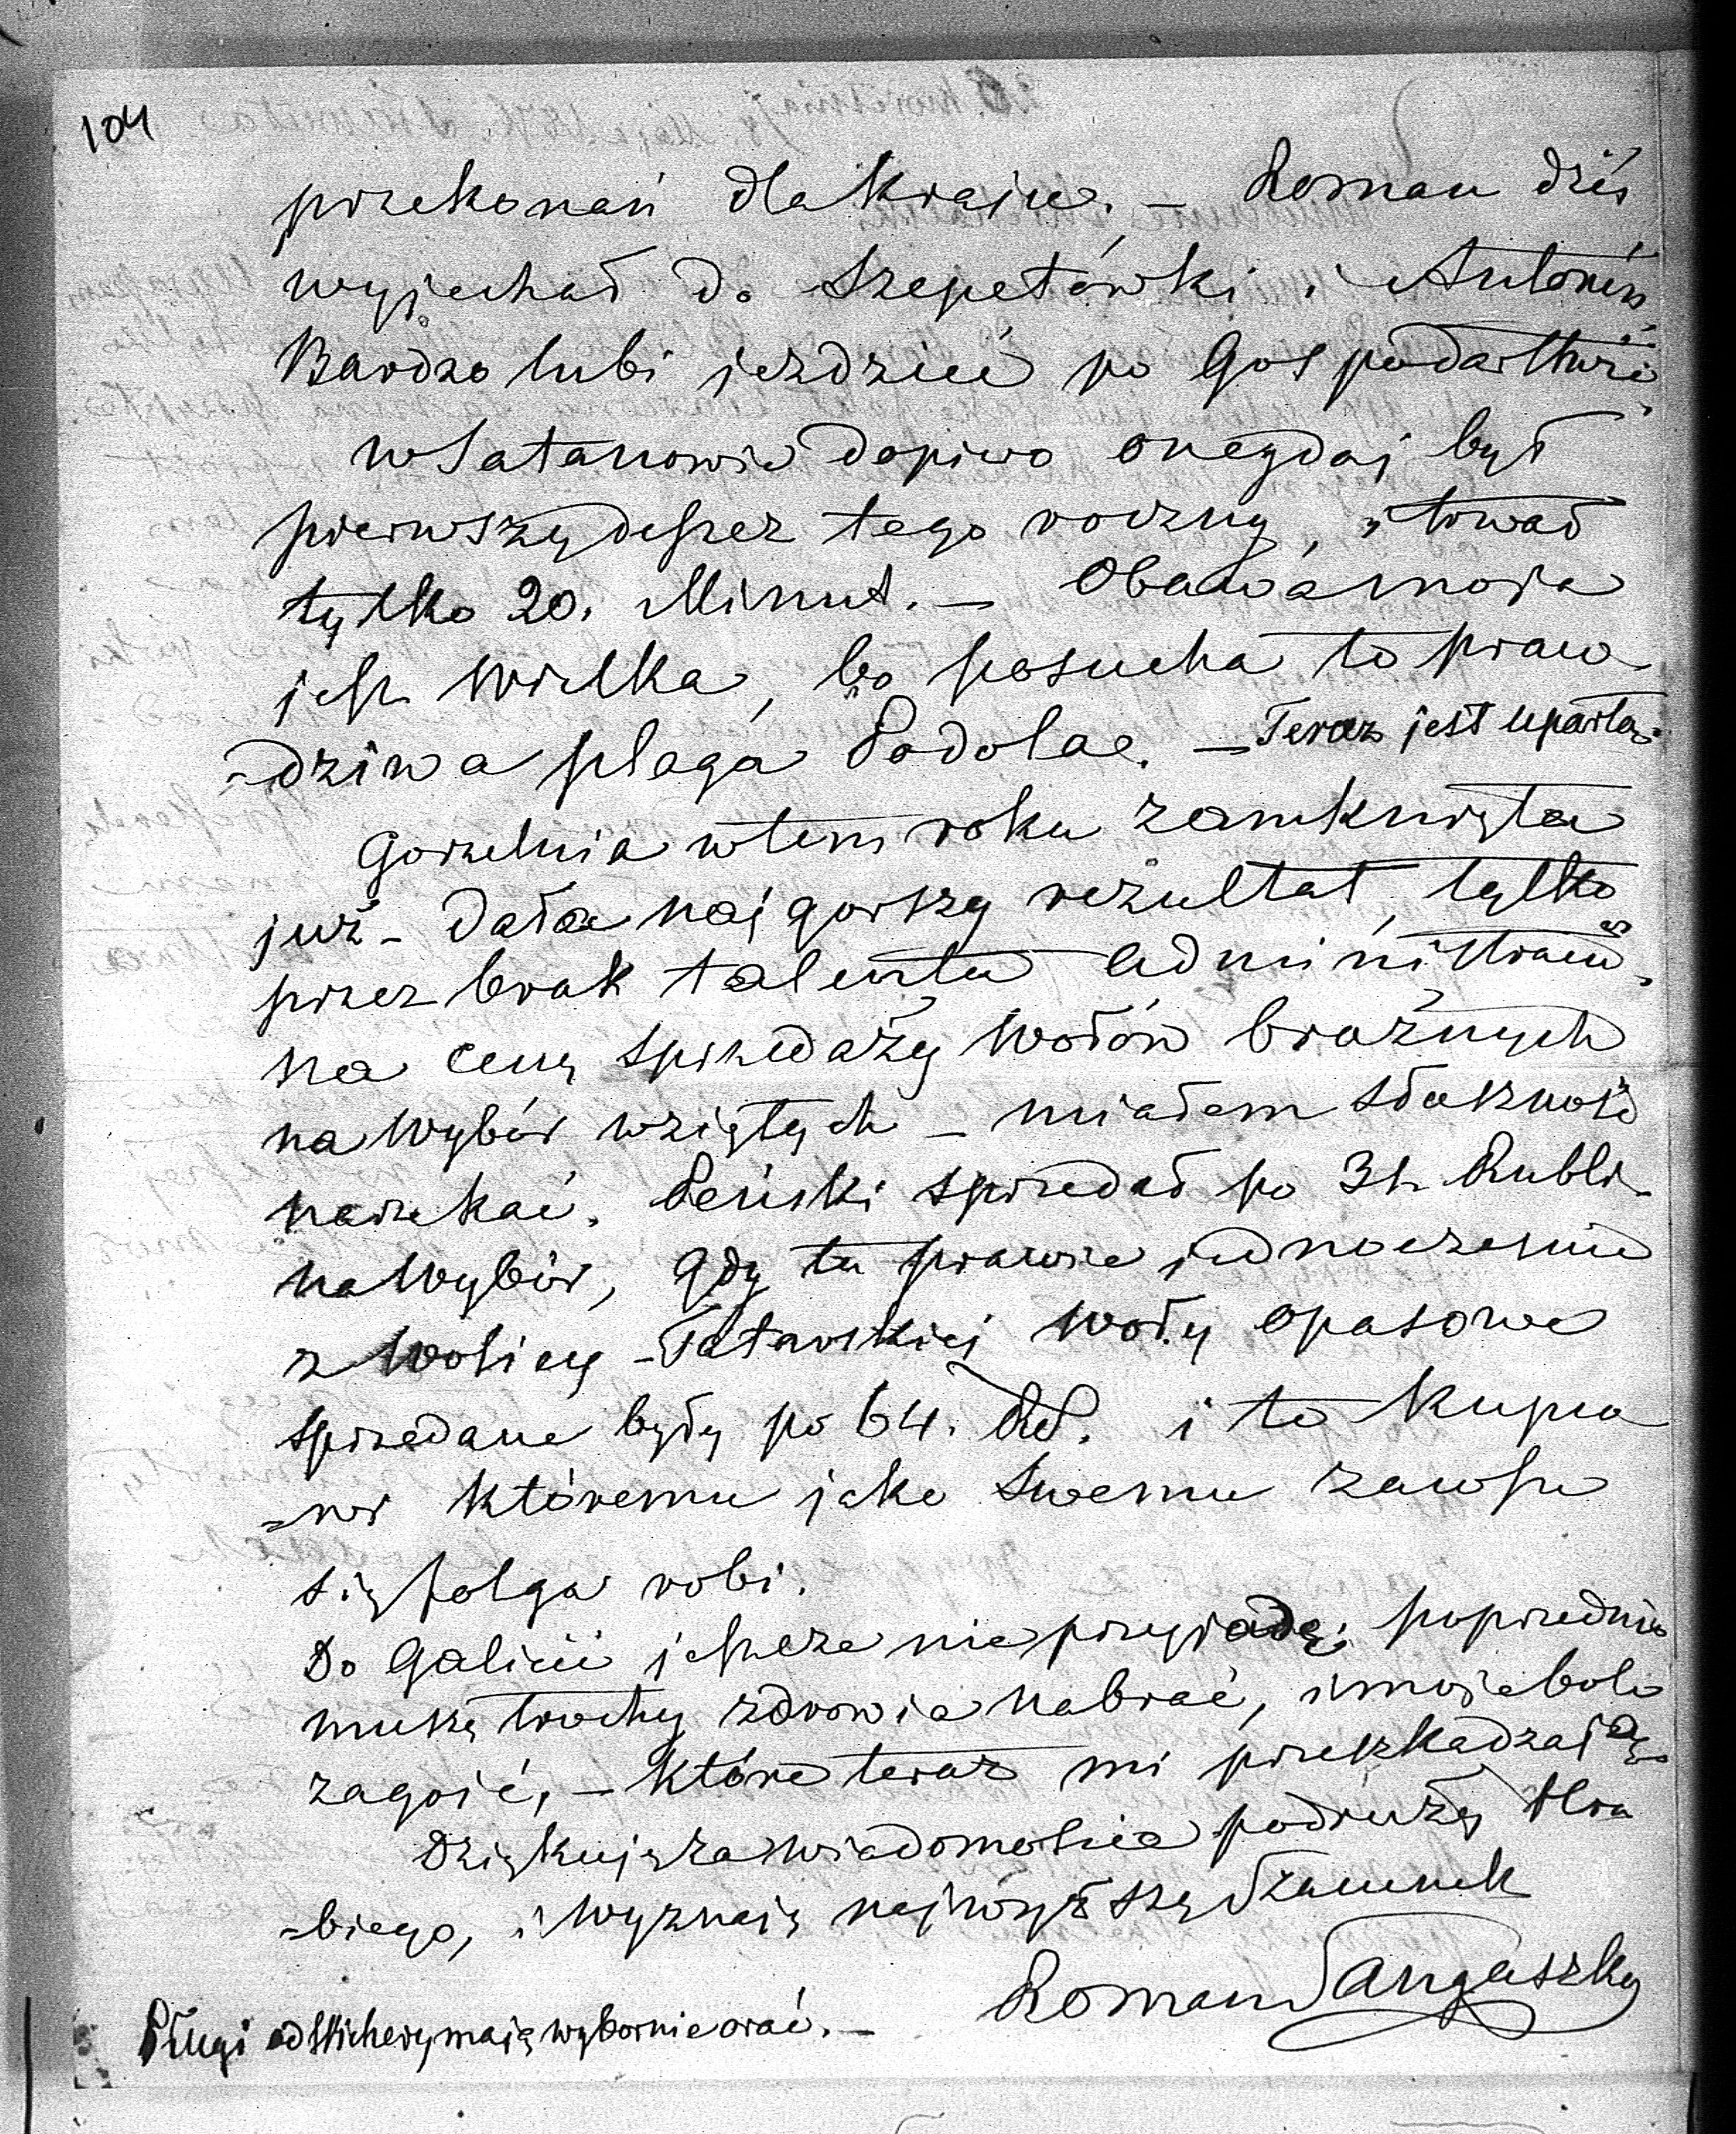 104
przekonań dla kraju. – Roman dziś
wyjechał do Szepetówki i Antonin
Bardzo lubi jezdzieć po Gospodarstwie
w Satanowie dopiro onegdaj był
pierwszy deszcz tego roczny, i trwał
tylko 20. Minut. – Obawa moja
jest wielka, bo posucha to praw
=dziwa plaga Podola. – Teraz jest uparta.
Gorzelnia w tem roku zamknięta
już – Dała najgorszy rezultat, tylko
przez brak talentu administra
na cenę sprzedaży wołów braźnych
na wybór wziętych – miałem słuszność
narzekać. Leński sprzedał po Rubli
na wybór, gdy tu prawie jednocześnie
z Wolicy – Tatarskiej woły opasowe
sprzedane były po 64. RS. i to kupco
=wi któremu jako swemu zawsze
się folga robi.
Do Galicii jeszcze nie przyjadę; poprzednio
muszę trochę zdrowia nabrać, i moje bole
zagoić, – które teraz mi przeszkadzają
Dziękuję za wiadomoście podróży Hra
=biego, i wyznaję najwyższy Szacunek
Roman Sanguszko
Pługi od mają wybornie orać. –